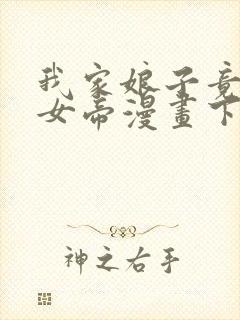 我家娘子竟
女帝漫畫下
神之右手